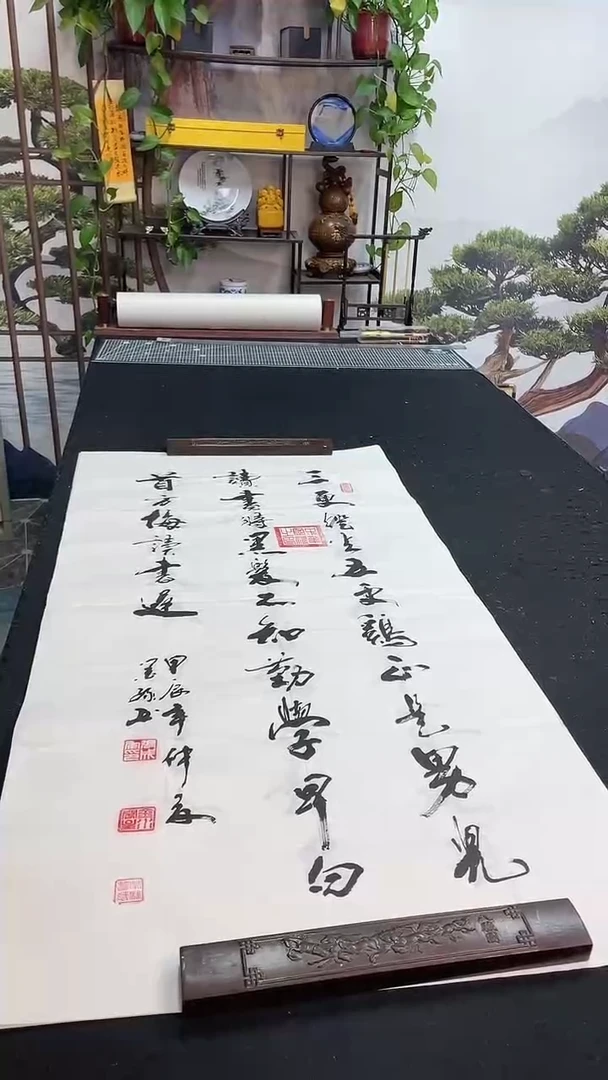 三更燈火五更鷄正是男兒
讀書時黑髮不知勤學早白
首方悔讀書遲
甲辰年仲夏
墨緣書